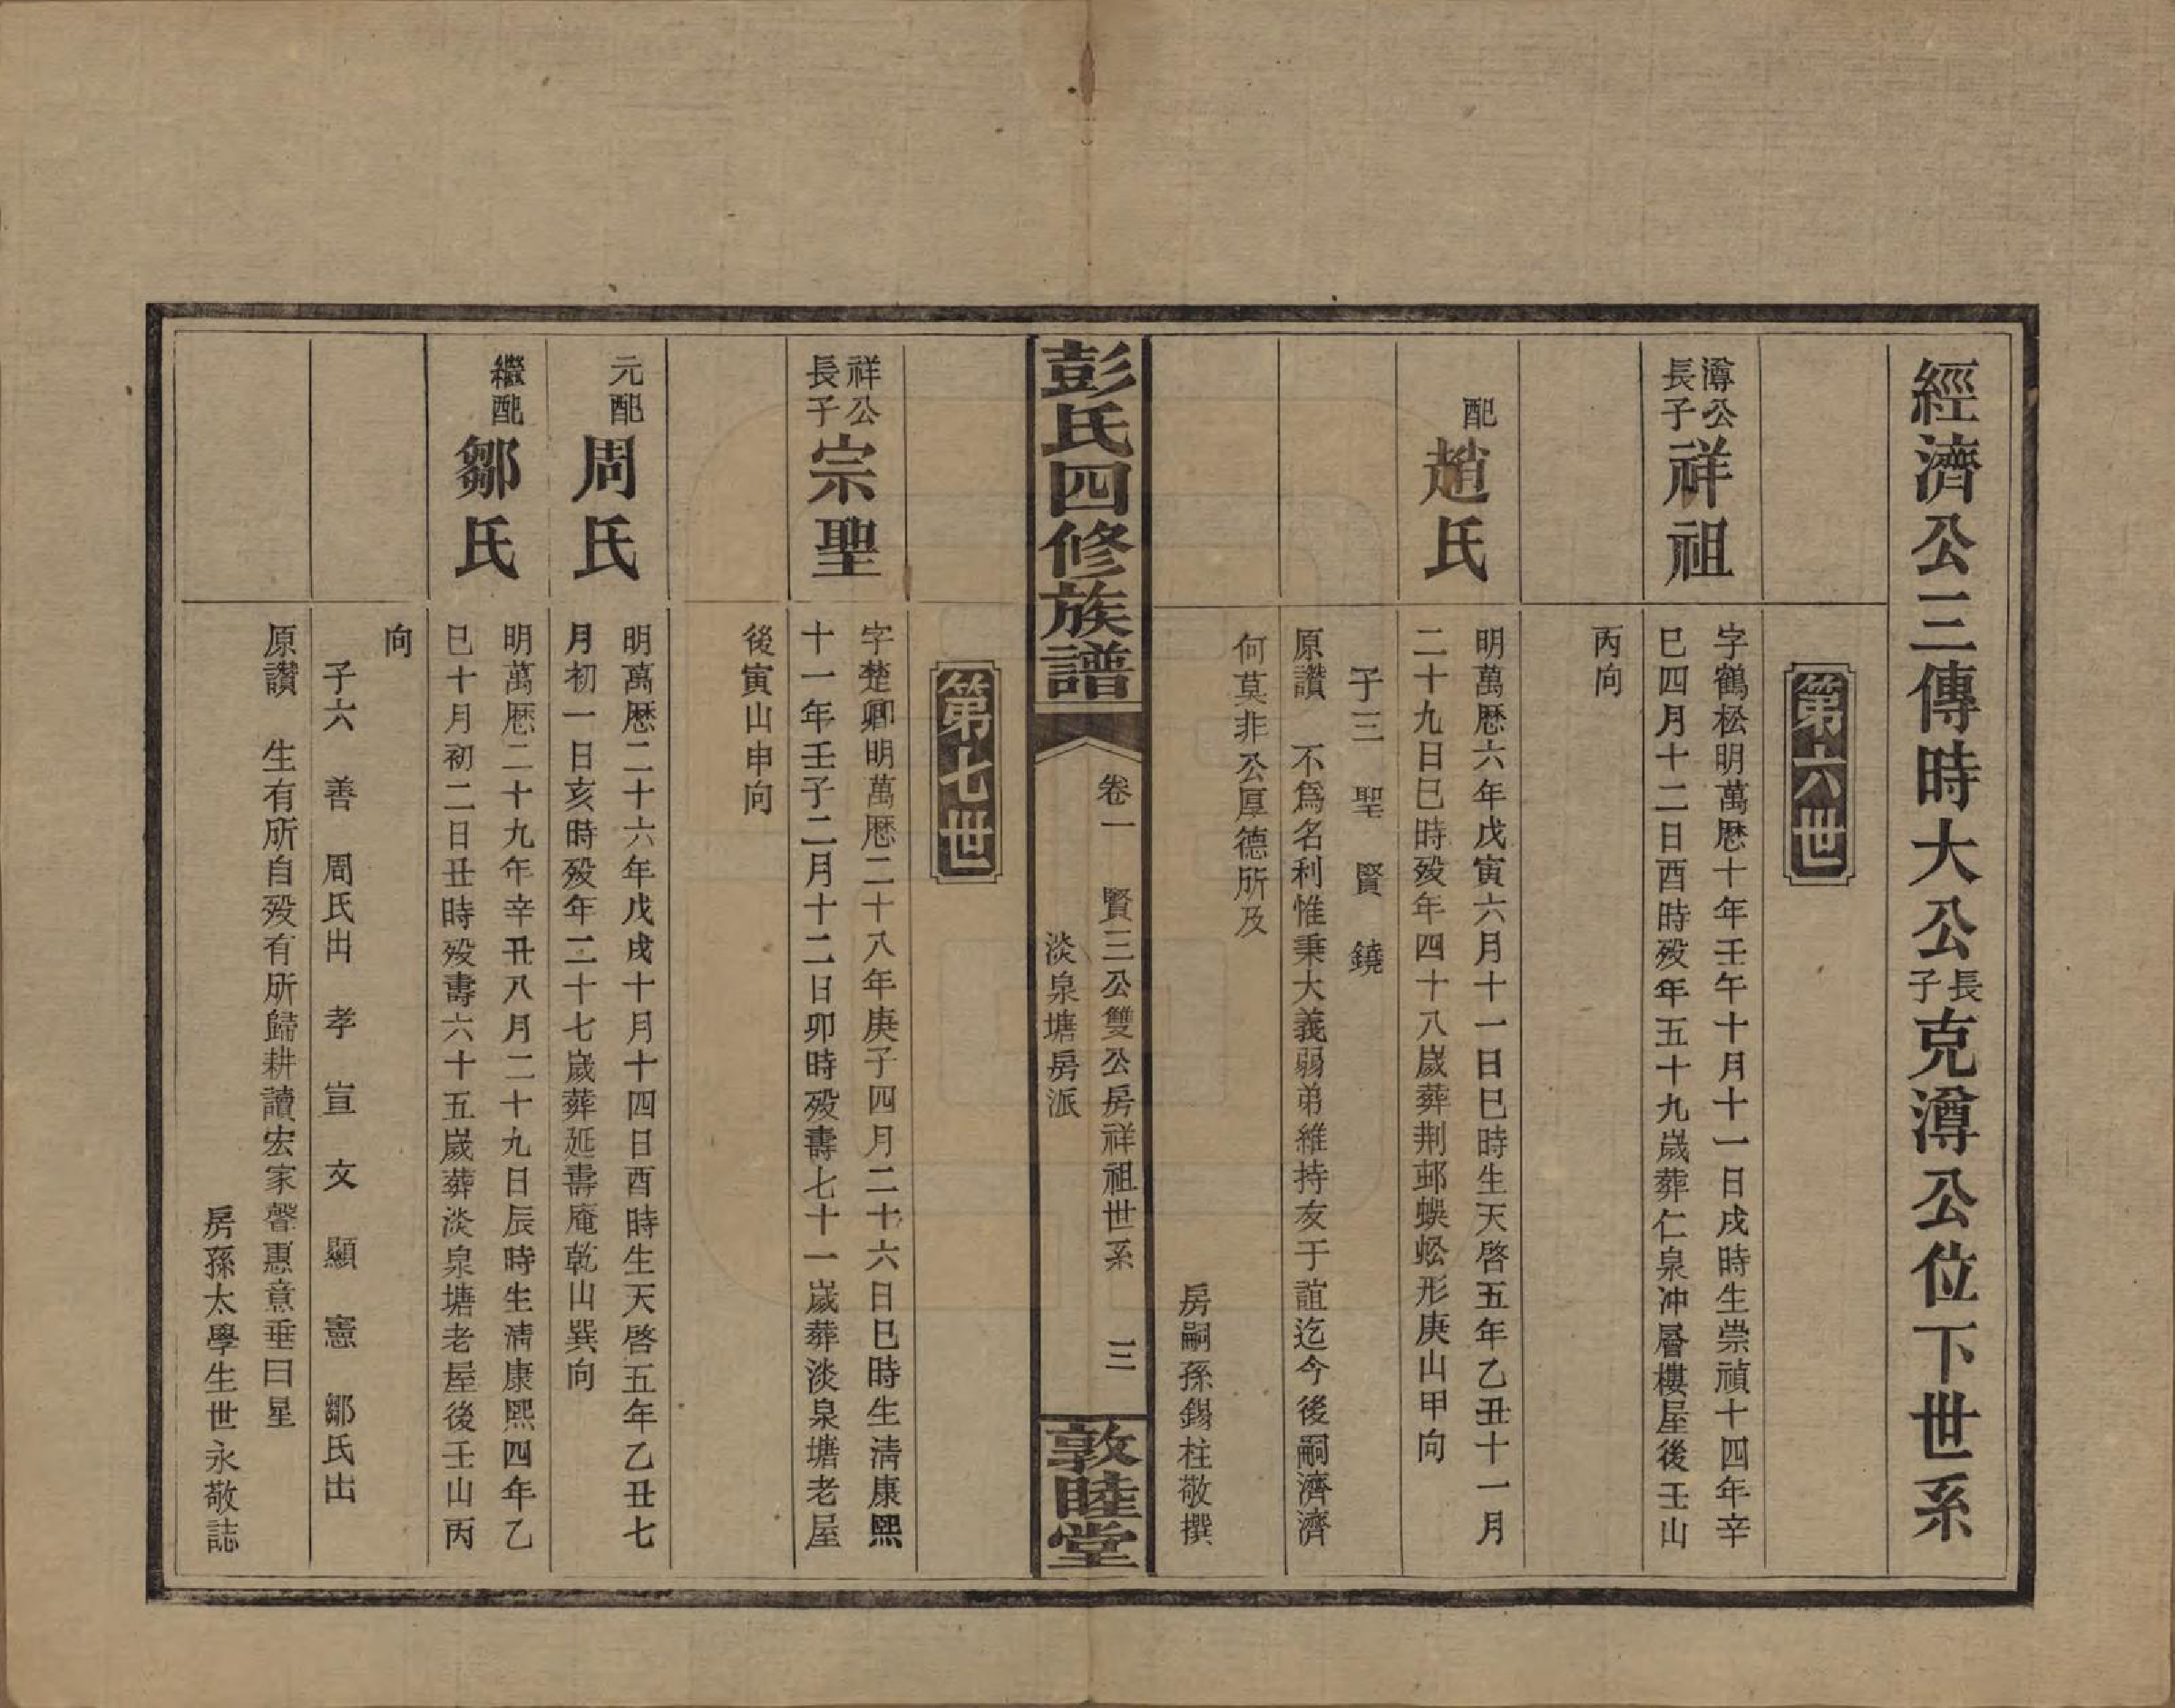 經濟公三傳時大公長子克澊公位下世系
第六世
澊公長子
祥祖
字鶴松明萬厯十年壬午十月十一日戌時生崇禎十四年辛
巳四月十二日酉時殁年五十九歲葬仁泉冲層樓屋後壬山
丙向
配
趙氏
明萬厯六年戊寅六月十一日巳時生天啓五年乙丑十一月
二十九日巳時殁年四十八歲葬荆邨蜈蚣形庚山甲向
子三　聖　賢　鐃
原讚　不爲名利惟秉大義弱弟維持友于誼迄今後嗣濟濟
何莫非公厚德所及
房嗣孫錫柱敬撰
彭氏四修族譜
卷一　賢三公雙公房祥祖世系　三
淡泉塘房派
敦睦堂
第七世
祥公長子
宗聖
字楚卿明萬厯二十八年庚子四月二十六日巳時生清康熙
十一年壬子二月十二日卯時殁壽七十一歲葬淡泉塘老屋
後寅山申向
元配
周氏
明萬厯二十六年戊戌十月十四日酉時生天啓五年乙丑七
月初一日亥時殁年二十七歲葬延壽庵乾山巽向
繼配
鄒氏
明萬厯二十九年辛丑八月二十九日辰時生清康熙四年乙
巳十月初二日丑時殁壽六十五歲葬淡泉塘老屋後壬山丙
向
子六　善　周氏出　孝　宣　文　顯　憲　鄒氏出
原讚　生有所自殁有所歸耕讀宏家聲惠意垂曰星
房孫太學生世永敬誌